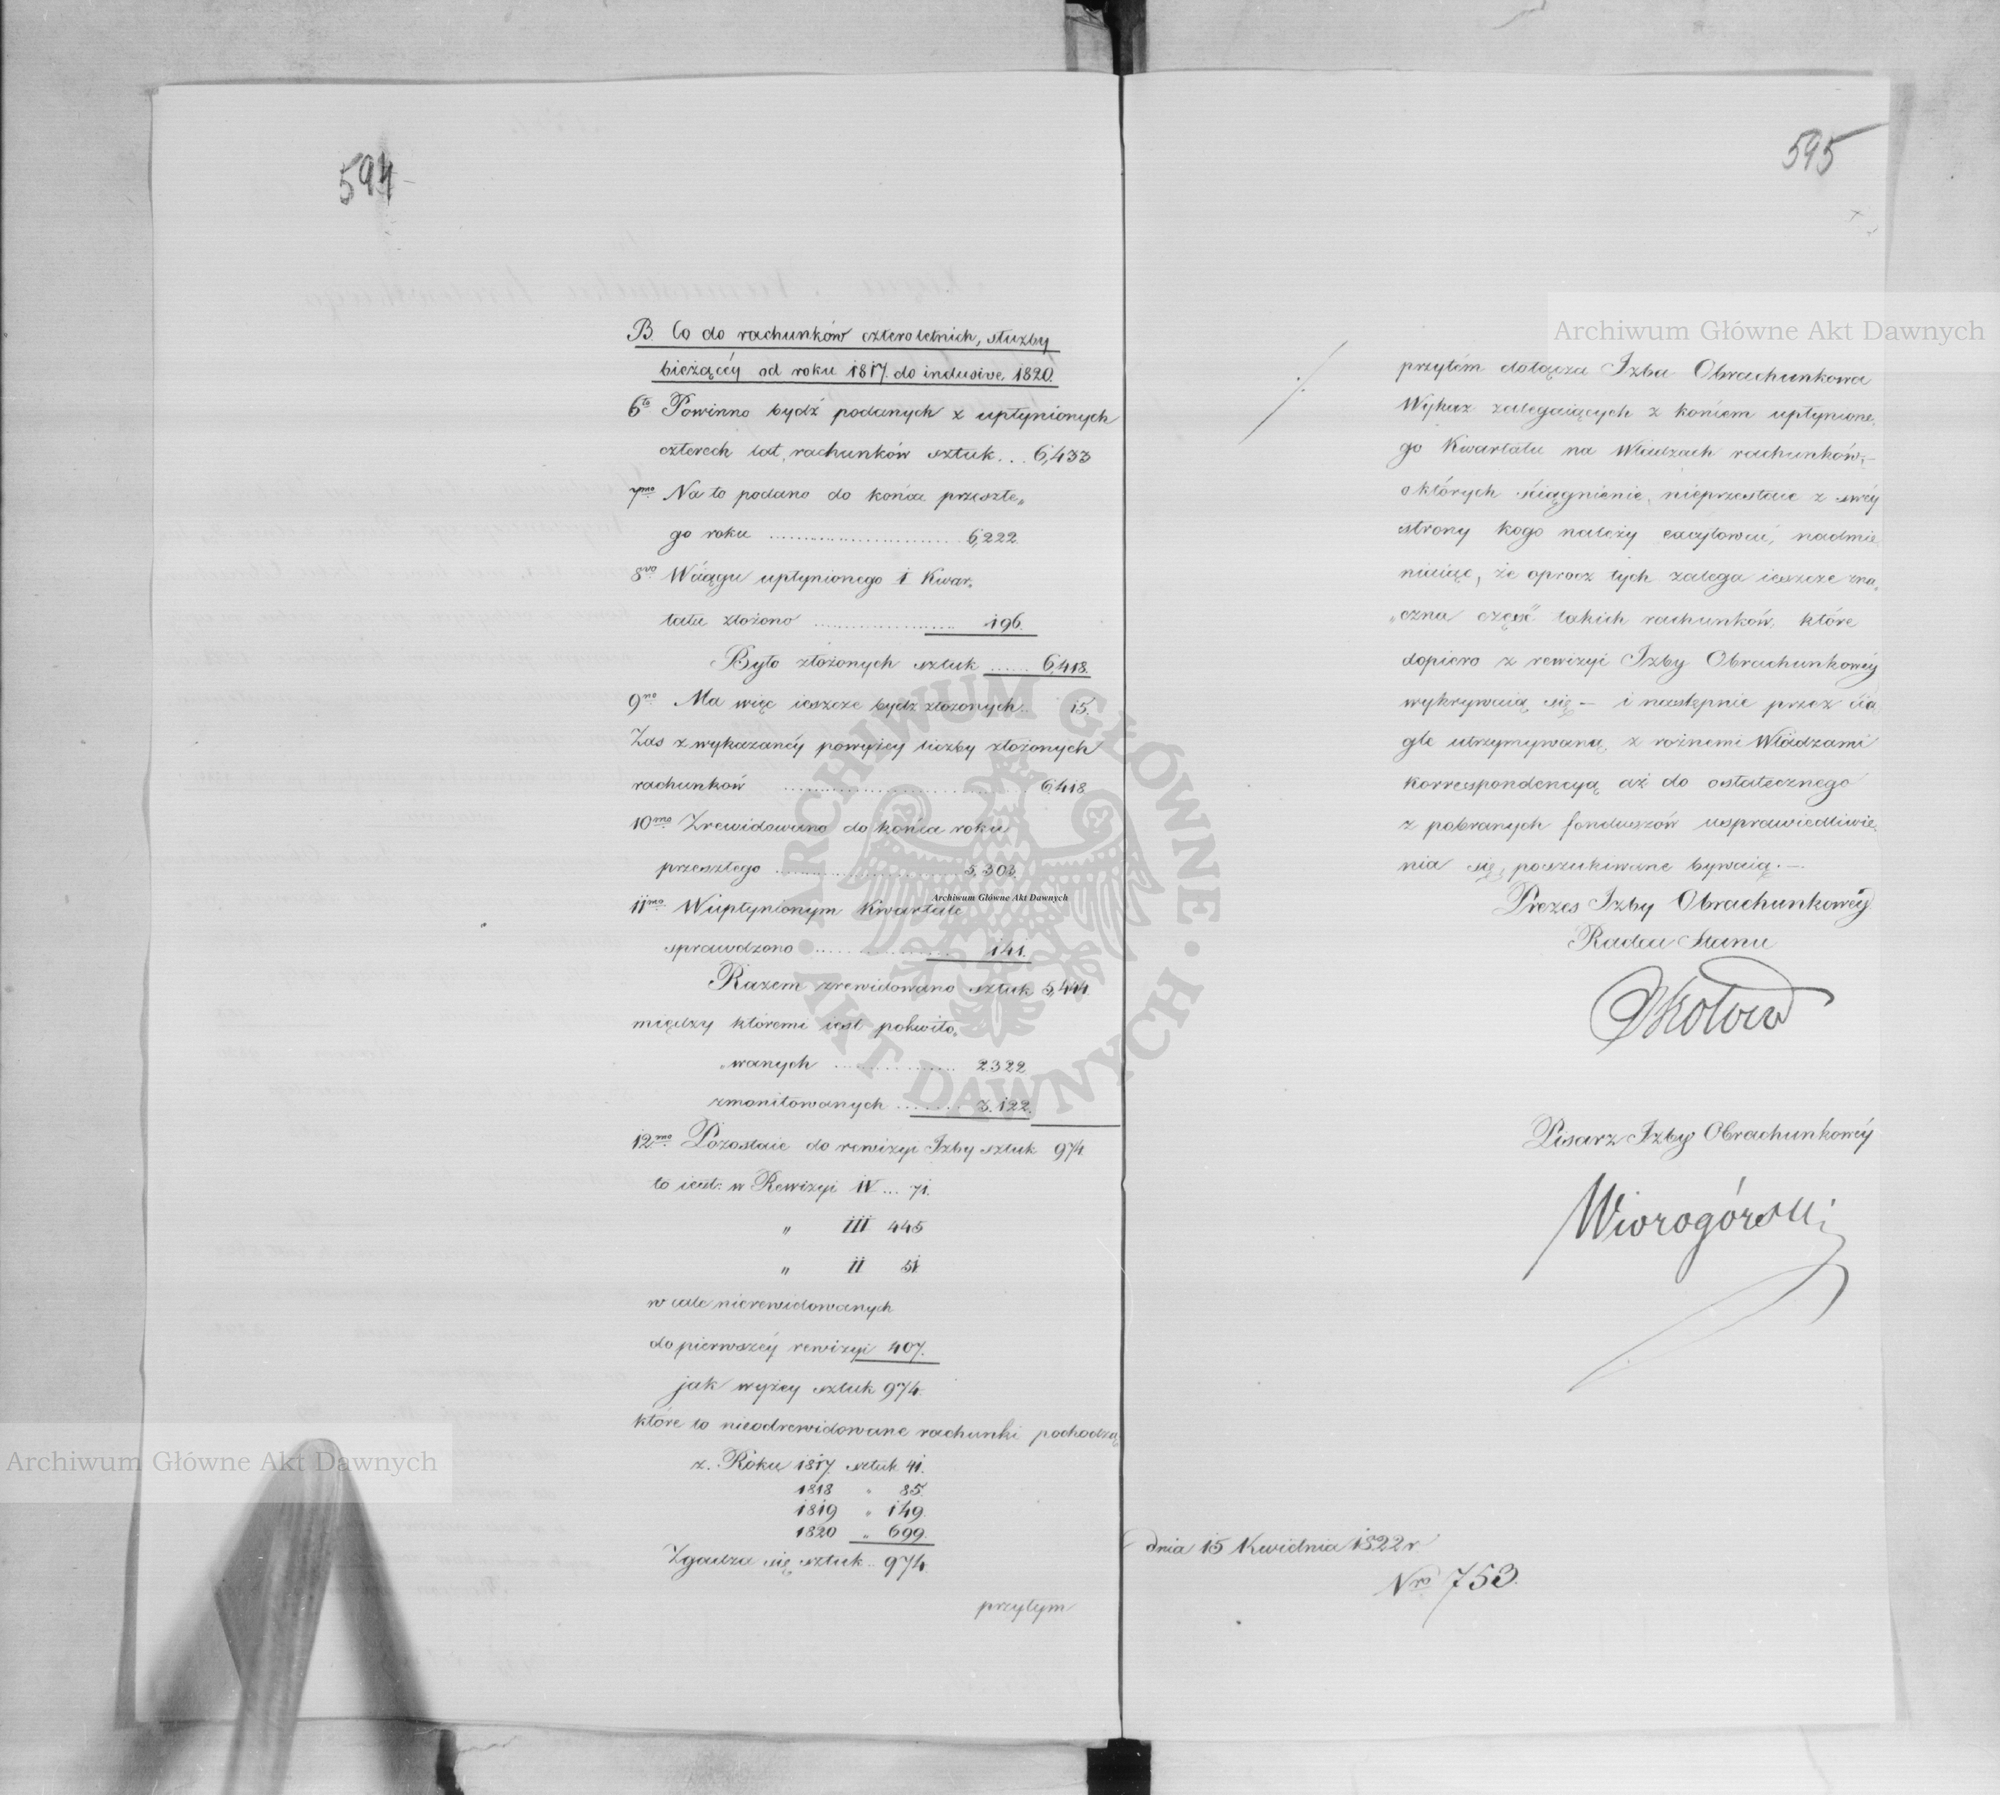 594
B. Co do rachunków czteroletnich, służby
bieżącéy od roku 1817. do inclusive 1820.
6to Powinno bydź podanych z upłynionych
czterech lat, rachunków sztuk... 6,433
7mo Na to podano do końca przeszłe„
go roku ........................ 6,222.
8vo Wciągu upłynionego I. Kwar„
tału złożono .................... 196.
Było złożonych sztuk ...... 6,418.
9no Ma więc ieszcze bydź złożonych.. 15.
Zaś z wykazanéy powyżey liczby złożonych
rachunków ........................ 6,418
10mo Zrewidowano do końca roku
przeszłego ........................ 5,303.
11mo Wupłynionym Kwartale
sprawdzono ................ 141.
Razem zrewidowano sztuk 5,444.
między któremi iest pokwito„
„wanych ................ 2322
zmonitowanych ........ 3.122.
12mo Pozostaie do rewizyi Izby sztuk 974
to iest: w Rewizyi IV ... 71.
„ III 445
„ II. 51.
w cale nierewidowanych
do pierwszéy rewizyi 407.
jak wyżey sztuk 974.
które to nieodrewidowane rachunki pochodzą
z. Roku 1817. sztuk 41.
1818 „ 85.
1819 „ 149.
1820 „ 699.
Zgadza się sztuk .. 974.
przytym
595
przytém dołącza Izba Obrachunkowa
Wykaz zalegaiących z końcem upłynione„
go Kwartału na Władzach rachunków,—
o których ściągnienie, nieprzestaie z swéy
strony kogo należy excytować, nadmie„
niaiąc, że oprocz tych zalega ieszcze zna„
„czna część takich rachunków, które
dopiero z rewizyi Izby Obrachunkowéy
wykrywaią się — i następnie przez cią„
gle utrzymywaną, z rożnemi Władzami
Korrespondencyą aż do ostatecznego
z pobranych funduszów usprawiedliwie„
nia się, poszukiwane bywaią.—
Prezes Izby Obrachunkowéy
Radca Stanu
Pisarz Izby Obrachunkowéy
Wiorogórski
dnia 15 Kwietnia 1822 r.
Nro 753.
Archiwum Główne Akt Dawnych
Archiwum Główne Akt Dawnych
Archiwum Główne Akt Dawnych
ARCHIWUM GŁÓWNE · AKT DAWNYCH ·